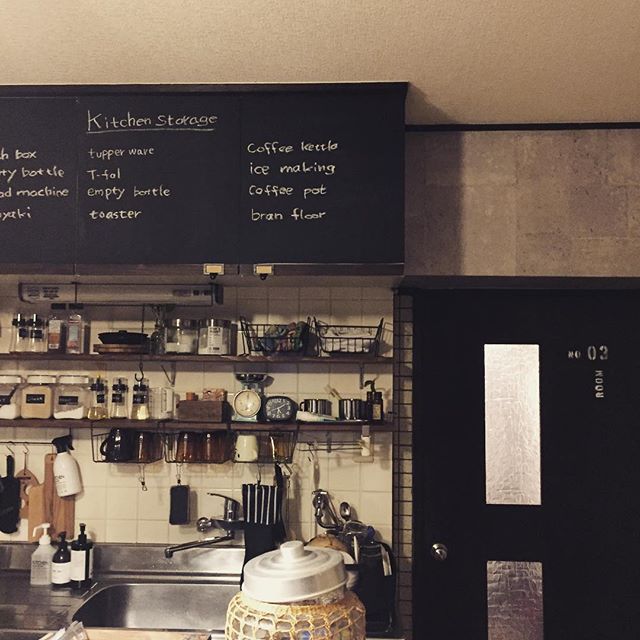 Kitchen Storage
h box
ty bottle
ad machine
yaki
tupper ware
T-fal
empty bottle
toaster
Coffee kettle
ice making
Coffee pot
bran floor
NO 03
ROOM